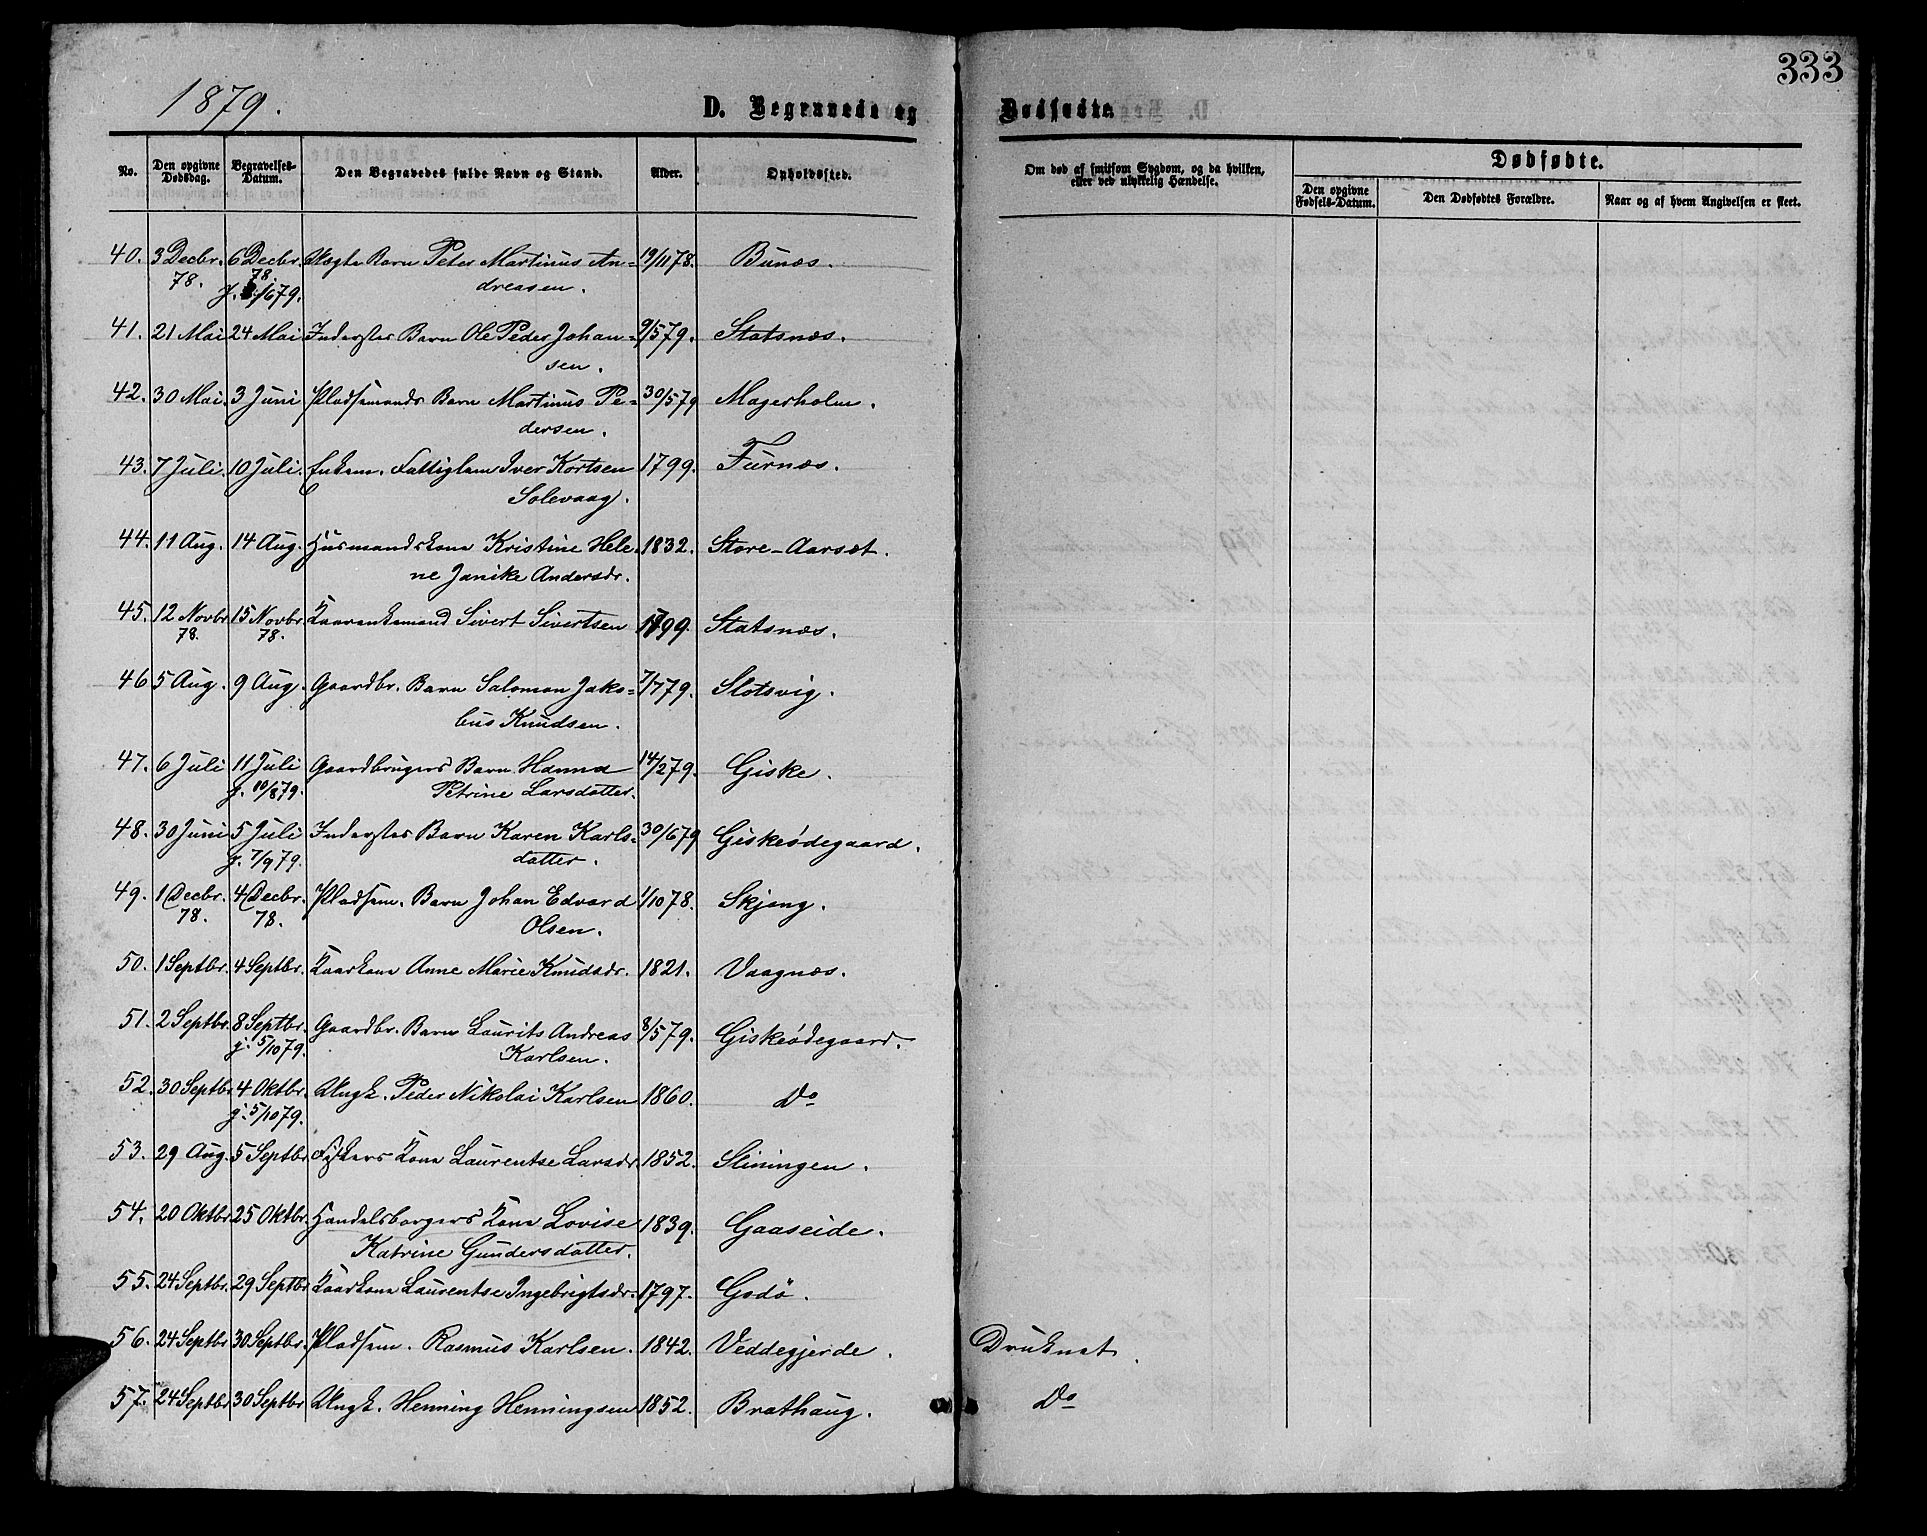 333
1879.
D. Begravede og Dødfødte.
No. Den opgivne Dødsdag. Begravelses-Datum. Den Begravedes fulde Navn og Stand. Alder. Opholdssted. Om død af smitsom Sygdom, og da hvilken, eller ved ulykkelig Hændelse. Dødfødte.
Den opgivne Fødsels-Datum. Den Dødfødtes Forældre. Naar og af hvem Angivelsen er skeet.
40. 3 Decbr. 6 Decbr. Uægte Barn Peter Martinus An- 19/1178. Bunæs.
78. 78. dreasen.
j. /679.
41. 21 Mai 24 Mai Inderstes Barn Ole Peder Johan- 9/579. Statsnæs.
sen.
42. 30 Mai. 3 Juni Pladsemands Barn Martinus Pe- 30/579 Magerholm.
dersen.
43. 7 Juli. 10 Juli. Enkem. Fattiglem Iver Kortsen 1799. Furnæs.
Solevaag.
44. 11 Aug. 14 Aug. Husmandskone Kristine Hele- 1832. Store-Aarsæt.
ne Janike Andersdr.
45. 12 Novbr 15 Novbr. Kaarenkemand Sivert Sivertsen 1799. Statsnæs.
78. 78.
46 5 Aug. 9 Aug. Gaardbr. Barn Salomon Jako- 7/779. Slotsvig.
bus Knudsen.
47. 6 Juli 11 Juli Gaardbrugers Barn Hanna 14/279. Giske.
j. 10/879. Petrine Larsdatter.
48. 30 Juni 5 Juli Inderstes Barn Karen Karls- 30/679 Giskeødegaard.
j. 7/979. datter.
49. 1 Decbr. 4 Decbr. Pladsem. Barn Johan Edvard 1/1078. Skjong.
78. 78. Olsen.
50. 1 Septbr. 4 Septbr. Kaarkone Anne Marie Knudsdr. 1821. Vaagnæs.
51. 2 Septbr. 8 Septbr. Gaardbr. Barn Laurits Andreas 8/579. Giskeødegaard.
j. 5/1079. Karlsen.
52. 30 Septbr 4 Oktbr. Ungk. Peder Nikolai Karlsen 1860. Do
j. 5/1079.
53. 29 Aug. 5 Septbr Fiskers Kone Laurentse Larsdr. 1852. Slinningen.
54. 20 Oktbr 25 Oktbr. Handelsborgers Kone Lovise 1839. Gaaseide.
Katrine Gundersdatter.
55. 24 Septbr. 29 Septbr Kaarkone Laurentse Ingebrigtsdr. 1797. Godø.
56. 24 Septbr 30 Septbr. Pladsem. Rasmus Karlsen. 1842. Veddegjerde. Druknet.
57. 24 Septbr 30 Septbr Ungk. Henning Henningsen 1852. Brathaug. Do